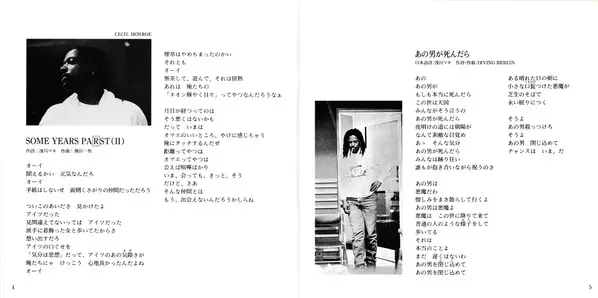 CECIL MONROE
SOME YEARS PARST(II)
作詩/浅川マキ 作曲/渋谷 毅
オーイ
聞えるかい 元気なんだろ
オーイ
手紙はしないぜ 面倒くさがりの仲間だっただろう
ついこのあいださ 見かけたよ
アイツだった
見間違えてないってば アイツだった
派手に着飾った女と歩いてたからさ
想い出すだろ
アイツの口ぐせを
「気分は思想」だって、アイツのあの気障さが
俺たちにゃ けっこう 心地良かったんだよね
オーイ
4
煙草はやめちまったのかい
それとも
オーイ
無茶して、遊んで、それは情熱
あれは 俺たちの
「ネオン輝やく日々」ってやつなんだろうなぁ
月日が経つってのは
そう悪くはないかも
だって いまは
オマエのいいところ、やけに感じちゃう
俺にタッチするんだぜ
距離ってやつは
オマエってやつは
会えば喧嘩ばかり
いま、会っても、きっと、そう
だけど、さあ
そんな仲間とは
もう、出会えないんだろうからね
あの男が死んだら
日本語詩/浅川マキ 作詩・作曲/IRVING BERLIN
あの
あの男が
もしも本当に死んだら
この世は天国
みんながそう言うの
あの男が死んだら
夜明けの道には朝陽が
なんて素敵な目覚め
あゝ そんな気分
あの男が死んだら
みんなは踊り狂い
誰もが抱き合いながら祝うのさ
あの男は
悪魔だわ
憎しみをまき散らして行くよ
あの男は悪魔よ
悪魔は この世に降りて来て
普通の人のような様子をして
歩いてる
それは
本当のことよ
まだ 遅くはないわ
あの男を閉じ込めて
あの男を閉じ込めて
ある晴れた日の朝に
小さな口髭つけた悪魔が
芝生のそばで
永い眠りにつく
そうよ
あの男殺っつけろ
そうよ
あの男 閉じ込めて
チャンスは いま、だ
5